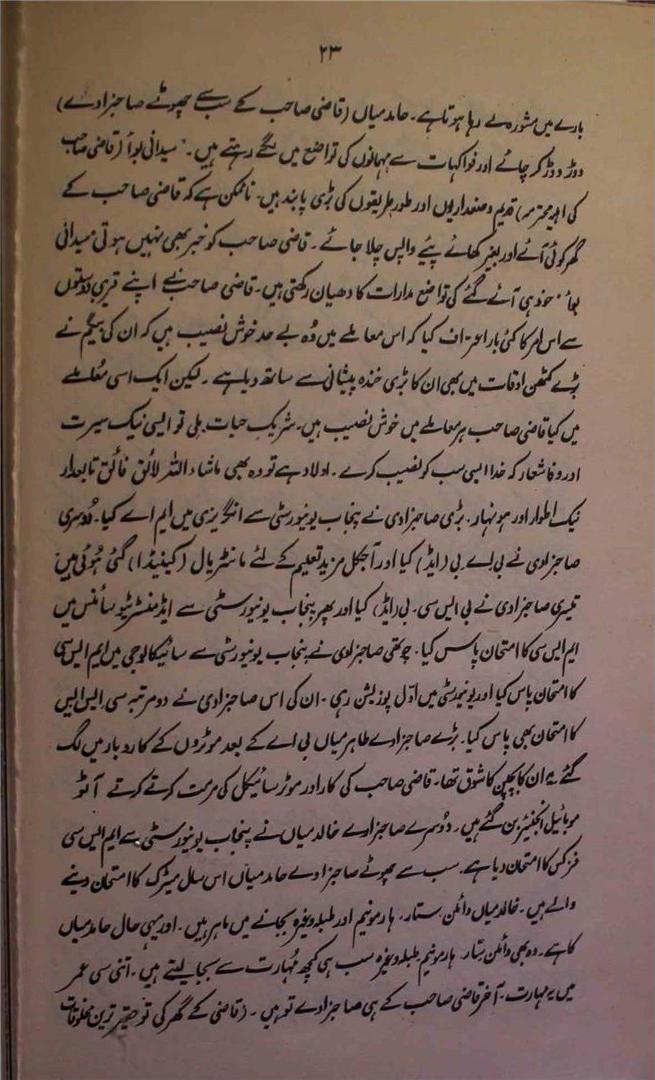 ۲۳
بارے میں مشورہ لے رہا ہوتا ہے۔ حامد میاں (قاضی صاحب کے سب سے چھوٹے صاحبزادے)
دوڑ دوڑ کر چائے اور فواکہات سے مہمانوں کی تواضع میں لگے رہتے ہیں۔ "سیدانی بوا" (قاضی صاحب
کی اہلیہ محترمہ) قدیم وضعداریوں اور طور طریقوں کی بڑی پابند ہیں۔ ناممکن ہے کہ قاضی صاحب کے
گھر کوئی آئے اور بغیر کھائے پئیے واپس چلا جائے۔ قاضی صاحب کو خبر بھی نہیں ہوتی سیدانی
بوا" خود ہی آئے گئے کی تواضع مدارات کا دھیان رکھتی ہیں۔ قاضی صاحب نے اپنے قریبی دوستوں
سے اس امر کا کئی بار اعتراف کیا کہ اس معاملے میں وُہ بے حد خوش نصیب ہیں کہ ان کی بیگم نے
بڑے کٹھن اوقات میں بھی ان کا بڑی خندہ پیشانی سے ساتھ دیا ہے۔ لیکن ایک اسی معُاملے
میں کیا قاضی صاحب ہر معاملے میں خوش نصیب ہیں۔ شریکِ حیات ملی تو ایسی نیک سیرت
اور وفا شعار کہ خدا ایسی سب کو نصیب کرے۔ اولاد ہے تو وہ بھی ماشاء اللہ لائق فائق تابعدار
نیک اطوار اور ہونہار۔ بڑی صاحبزادی نے پنجاب یونیورسٹی سے انگریزی میں ایم اے کیا۔ دُوسری
صاحبزادی نے بی اے۔ بی (ایڈ) کیا اور آجکل مزید تعلیم کے لئے مانٹریال (کینیڈا) گئی ہُوئی ہیں
تیسری صاحبزادی نے بی ایس سی۔ بی (ایڈ) کیا اور پھر پنجاب یونیورسٹی سے ایڈمنسٹریٹو سائنس میں
ایم ایس سی کا امتحان پاس کیا۔ چوتھی صاحبزادی نے پنجاب یونیورسٹی سے سائیکالوجی میں ایم ایس سی
کا امتحان پاس کیا اور یونیورسٹی میں اوّل پوزیشن رہی۔ ان کی اس صاحبزادی نے دو مرتبہ سی ایس ایس
کا امتحان بھی پاس کیا۔ بڑے صاحبزادے طاہر میاں بی اے کے بعد موٹروں کے کاروبار میں لگ
گئے یہ ان کا بچپن کا شوق تھا۔ قاضی صاحب کی کار اور موٹر سائیکل کی مرمت کرتے کرتے آٹو
موبائیل انجنیئر بن گئے ہیں۔ دُوسرے صاحبزادے خالد میاں نے پنجاب یونیورسٹی سے ایم ایس سی
فزکس کا امتحان دیا ہے۔ سب سے چھوٹے صاحبزادے حامد میاں اس سال میٹرک کا امتحان دینے
والے ہیں۔ خالد میاں وائلن ستار۔ ہارمونیم اور طبلہ وغیرہ بجانے میں ماہر ہیں۔ اور یہی حال حامد میاں
کا ہے۔ وہ بھی وائلن ستار۔ ہارمونیم طبلہ وغیرہ سب ہی کچھ مہارت سے بجا لیتے ہیں۔ اتنی سی عمر
میں یہ مہارت۔ آخر قاضی صاحب کے ہی صاحبزادے تو ہیں۔ (قاضی کے گھر کی تو حقیر ترین مخلوقات